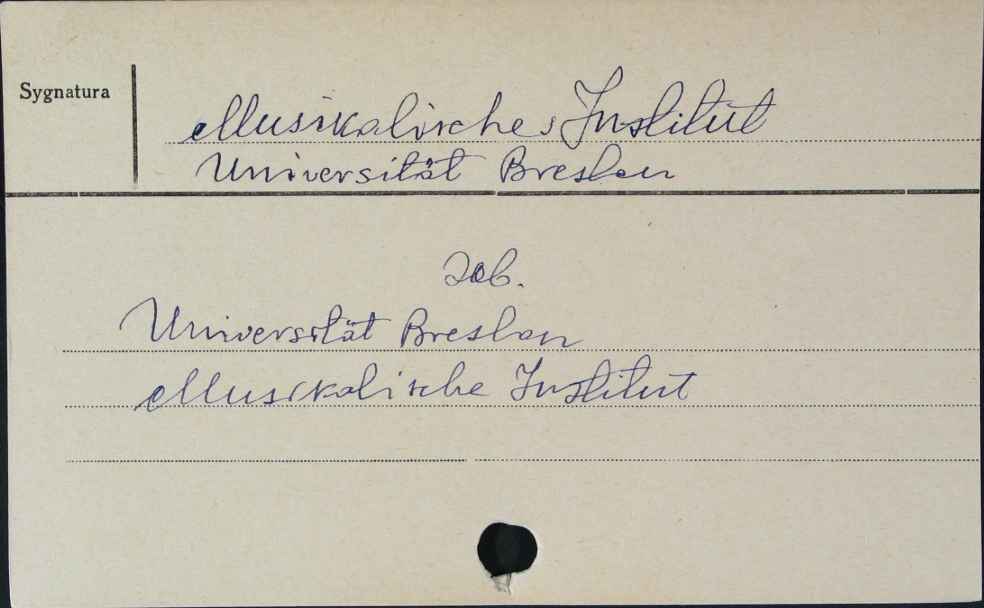 Sygnatura
Musikalisches Institut
Universität Breslau
Zob.
Universität Breslau
Musikalische Institut